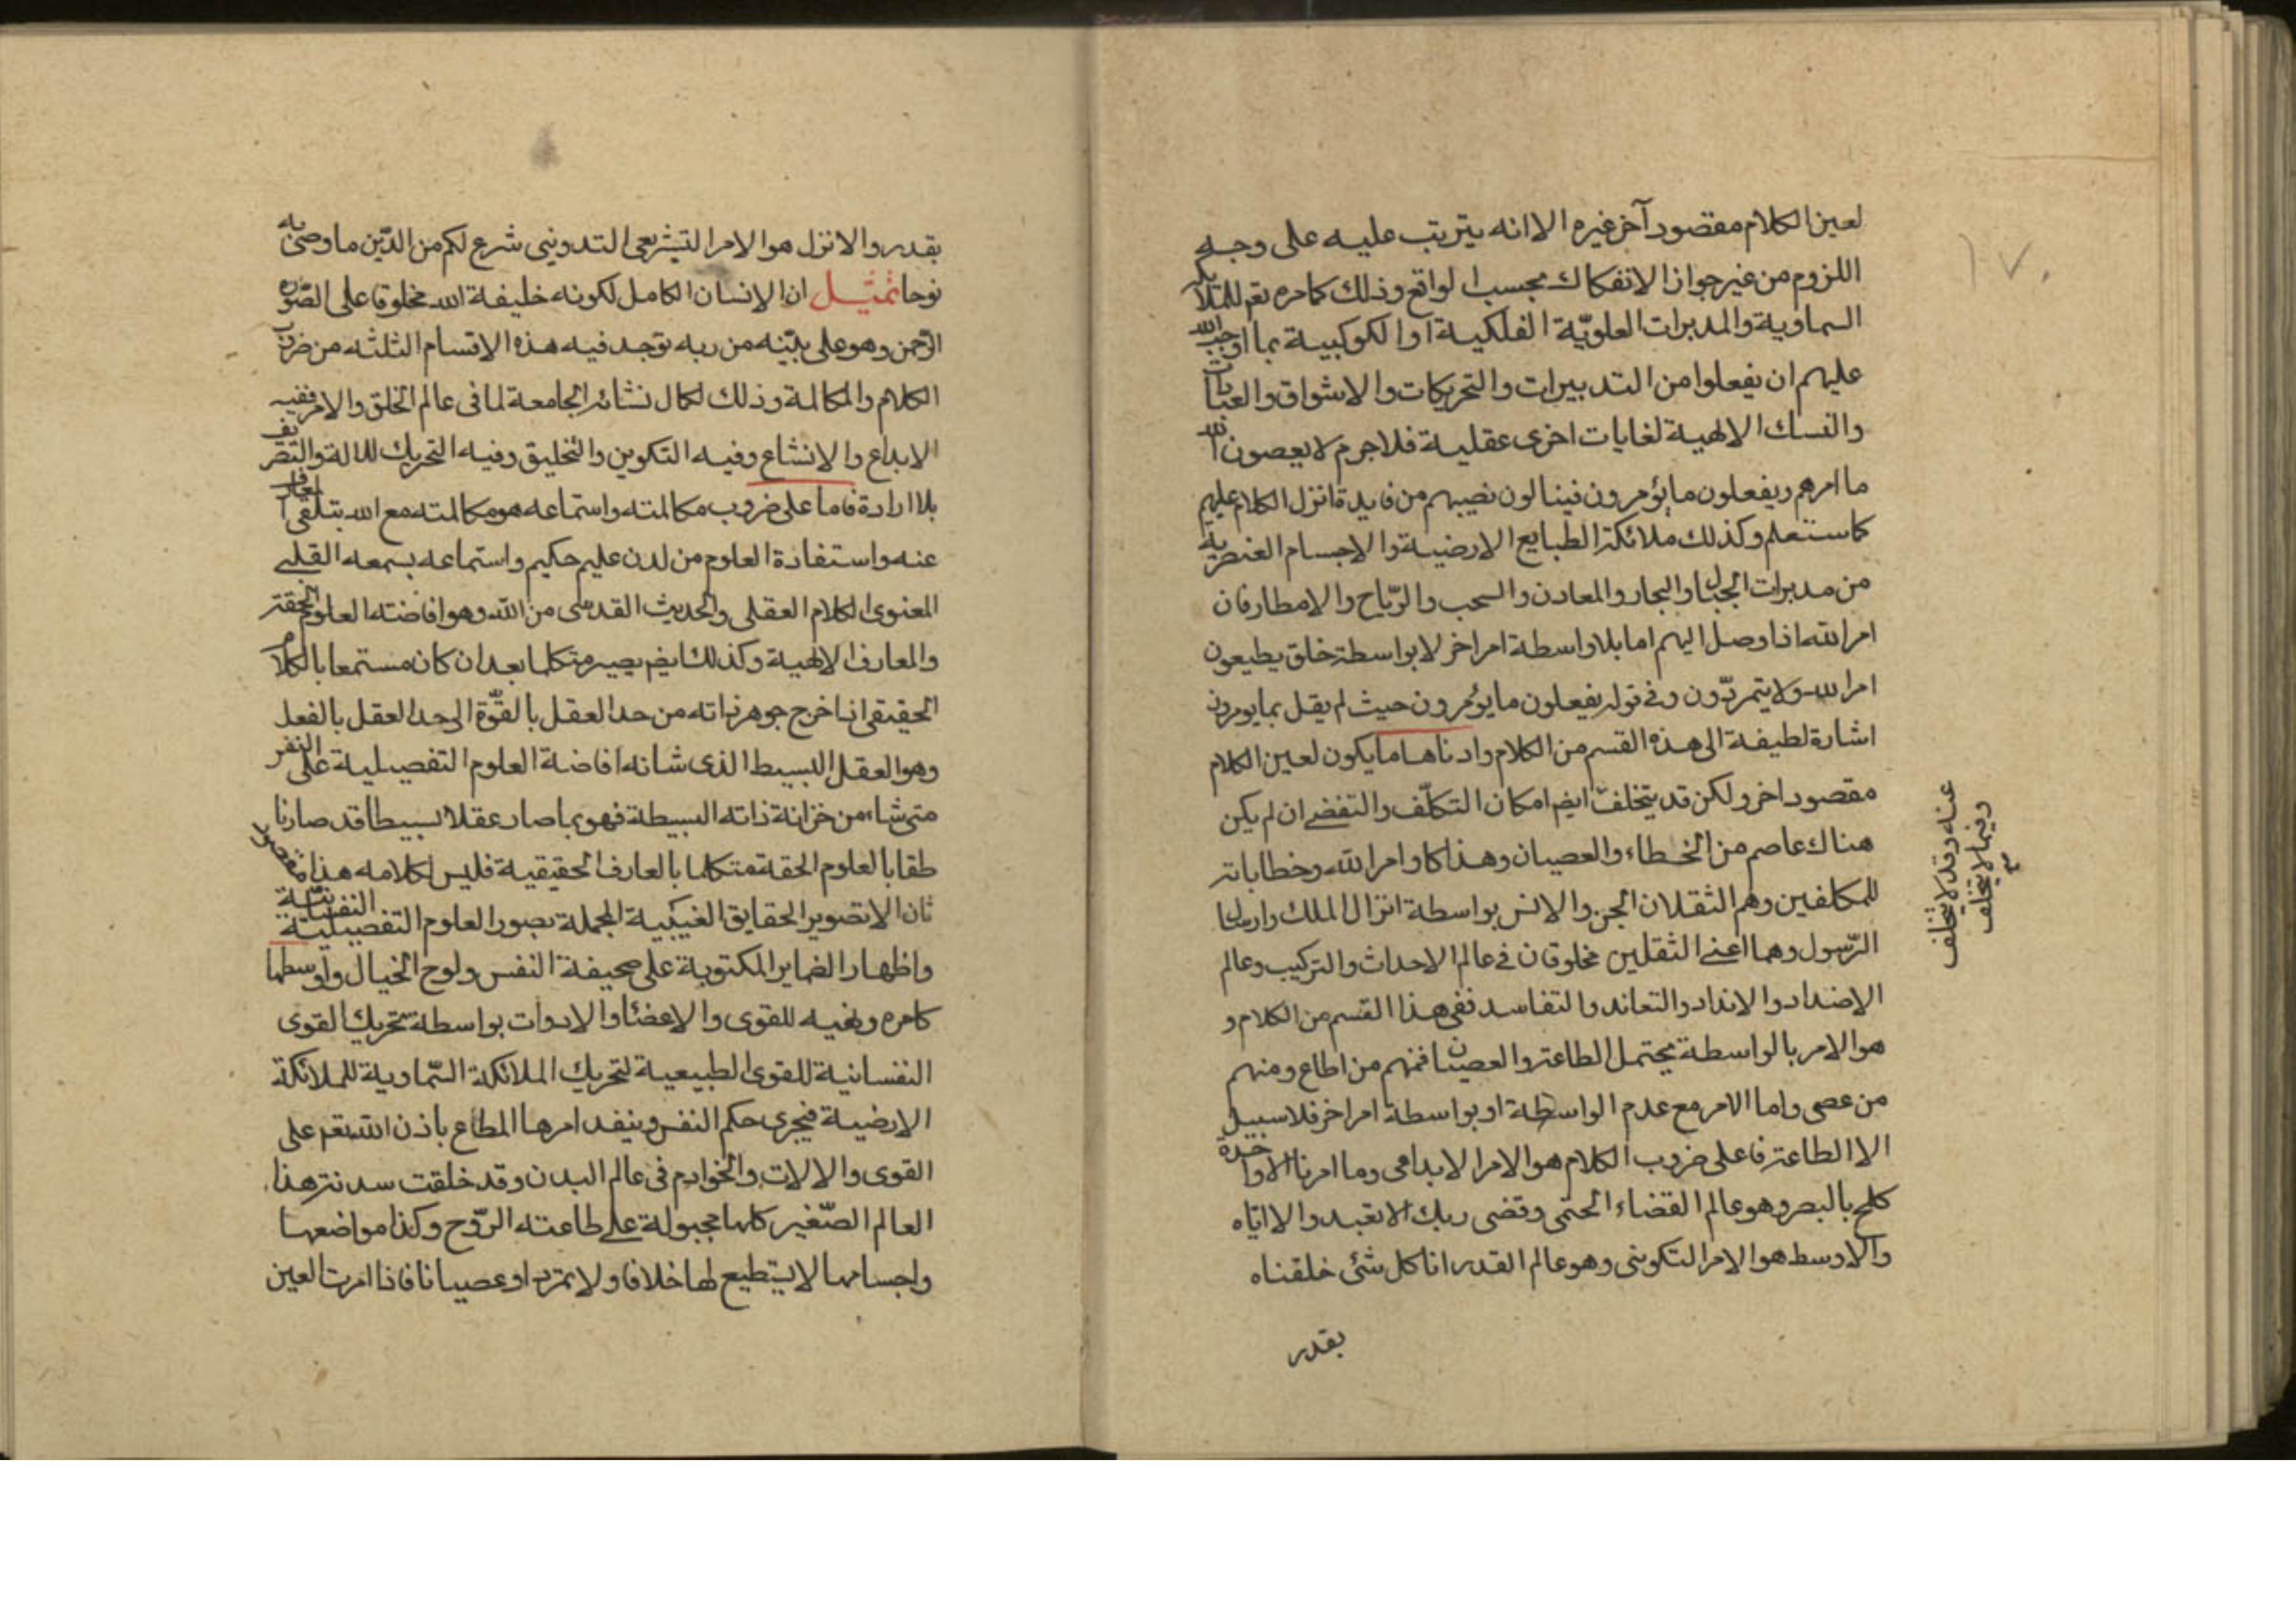 لعين الكلام مقصود آخر غيره الا انه يترتب عليه على وجه
اللزوم من غير جواز الانفكاك بحسب الواقع وذلك كامره تعم للملائكة
السماوية والمدبرات العلويّة الفلكية او الكوكبية بما اوجب الله
عليهم ان يفعلوا من التدبيرات والتحريكات والاشواق والعبادات
والنسك الالهية لغايات اخرى عقلية فلا جرم لا يعصون الله
ما امرهم ويفعلون ما يؤمرون فينالون نصيبهم من فايدة انزل الكلام عليهم
كما ستعلم وكذلك ملائكة الطبايع الارضية والاجسام العنصرية
من مدبرات الجبال والبحار والمعادن والسحب والرّياح والامطار فان
امر الله اذا وصل اليهم اما بلا واسطة امر اخر لا بواسطة خلق يطيعون
امر الله ولا يتمردّون وفي قوله يفعلون ما يؤمرون حيث لم يقل بما يومرون
اشارة لطيفة الى هذه القسم من الكلام وادناها ما يكون لعين الكلام
مقصود اخر ولكن قد يتخلف ايضم امكان التكلّف والتفضي ان لم يكن
هناك عاصم من الخطاء والعصيان وهذا كاوامر الله وخطاباته
للمكلفين وهم الثقلان الجن والانس بواسطة انزال الملك وارسال
الرّسول وهما اعني الثقلين مخلوقان في عالم الاحداث والتركيب وعالم
الاضداد والانداد والتعاند والتفاسد ففي هذا القسم من الكلام و
هو الامر بالواسطة يحتمل الطاعة والعصيان فمنهم من اطاع ومنهم
من عصى واما الامر مع عدم الواسطة او بواسطة امر اخر فلا سبيل
الا الطاعة فاعلى ضروب الكلام هو الامر الابداعي وما امرنا الا واحدة
كلمح بالبصر وهو عالم القضاء الحتمى وقضى ربك الا تعبدوا الا اياه
والاوسط هو الامر التكوينى وهو عالم القدر انا كل شئ خلقناه
بقدر
عنه وقد لا يتخلف
وفيما لا يتخلف
١٧٠
بقدر والانزل هو الامر التشريعى التدوينى شرع لكم من الدّين ما وصى به
نوحا تمثيل ان الانسان الكامل لكونه خليفة الله مخلوقا على الصّورة
الرّحمن وهو على بيّنه من ربه توجد فيه هذه الاقسام الثلثه من ضروب
الكلام والمكالمة وذلك لكمال نشائه الجامعة لما فى عالم الخلق والامر ففيه
الابداع والانشاع وفيه التكوين والتخليق وفيه التحريك للالة والتصريف
بلا ارادة فاما على ضروب مكالمته واستماعه هو مكالمته مع الله بتلقى المعارف
عنه واستفادة العلوم من لدن عليم حكيم واستماعه بسمعه القلبي
المعنوى الكلام العقلى والحديث القدسى من الله وهو افاضته العلوم الحقة
والمعارف الالهية وكذلك ايضم يصير متكلما بعد ان كان مستمعا بالكلام
الحقيقى اذا خرج جوهر ذاته من حد العقل بالقوّة الى حد العقل بالفعل
وهو العقل البسيط الذى شانه افاضة العلوم التفصيلية على النفس
متى شاء من خزانة ذاته البسيطة فهو بما صار عقلا بسيطا قد صار نا
طقا بالعلوم الحقة متكلما بالعارف الحقيقية فليس لكلامه هذا مقصود
ثان الا تصوير الحقايق الغيبية المجملة بصور العلوم التفصيلية النفسانية
واظهار الضماير المكتوبة على صحيفة النفس ولوح الخيال واوسطها
كامره ونهيه للقوى والاعضاء والادوات بواسطة تحريك القوى
النفسانية للقوى الطبيعية لتحريك الملائكة السّماوية للملائكة
الارضية فيجرى حكم النفس وينفد امرها المطاع باذن الله تعم على
القوى والالات والخوادم فى عالم البدن وقد خلقت سدنة هذا
العالم الصّغير كلها مجبولة على طاعته الرّوح وكذا مواضعها
واجسامها لا يستطيع لها خلافا ولا تمردا وعصيانا فاذا امرت العين